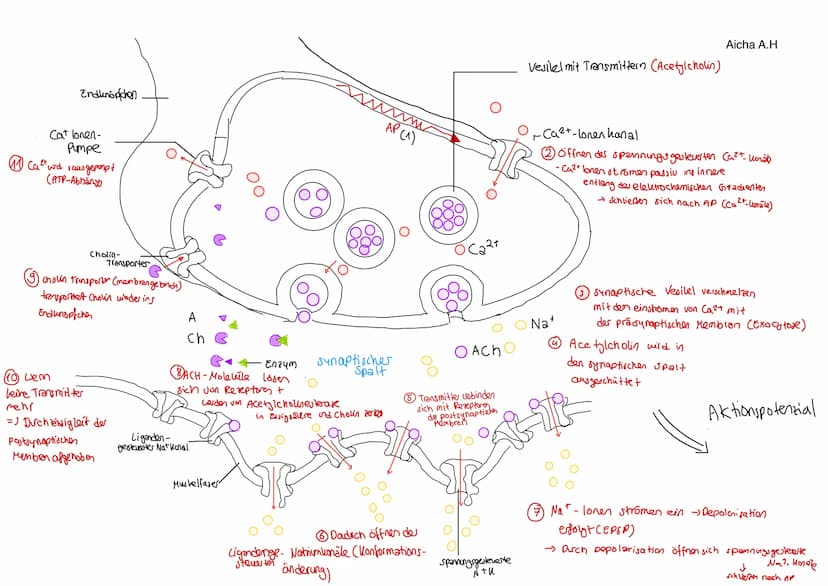 Aicha A.H
Vesikel mit Transmittern (Acetylcholin)
Endknöpfchen
AP (1)
Ca²⁺-Ionenkanal
Ca⁺ Ionen-
Pumpe
② Öffnen des spannungsgesteuerten Ca²⁺-Kanals
- Ca²⁺ Ionen strömen passiv ins innere
entlang des elektrochemischen Gradienten
→ schließen sich nach AP (Ca²⁺-Kanäle)
⑪ Ca²⁺ wird rausgepumpt
(ATP-Abhängig)
Ca²⁺
Cholin-
Transporter
⑨ Cholin Transporter (membrangebunden)
transportiert Cholin wieder ins
Endknöpfchen
③ synaptische Vesikel verschmelzen
mit den einströmen von Ca²⁺ mit
der präsynaptischen Membran (Exocytose)
A
Ch
Na⁺
ACh
Enzym
synaptischer
Spalt
④ Acetylcholin wird in
den synaptischen Spalt
ausgeschüttet
⑩ Wenn
keine Transmitter
mehr
=> Durchlässigkeit der
Postsynaptischen
Membran aufgehoben
⑧ ACH-Moleküle lösen
sich von Rezeptoren +
werden von Acetylcholinesterase
in Essigsäure und Cholin zerlegt
⑤ Transmitter verbinden
sich mit Rezeptoren
der postsynaptischen
Membran
Aktionspotential
Liganden-
gesteuerter Na⁺ Kanal
Muskelfaser
⑥ Dadurch öffnen der
Ligandenge- Natriumkanäle (Konformations-
steuerten änderung)
spannungsgesteuerte
⑦ Na⁺-Ionen strömen ein → Depolarisation
erfolgt (EPSP)
→ Durch Depolarisation öffnen sich spannungsgesteuerte
Na⁺ Kanäle
↓
schließen nach AP